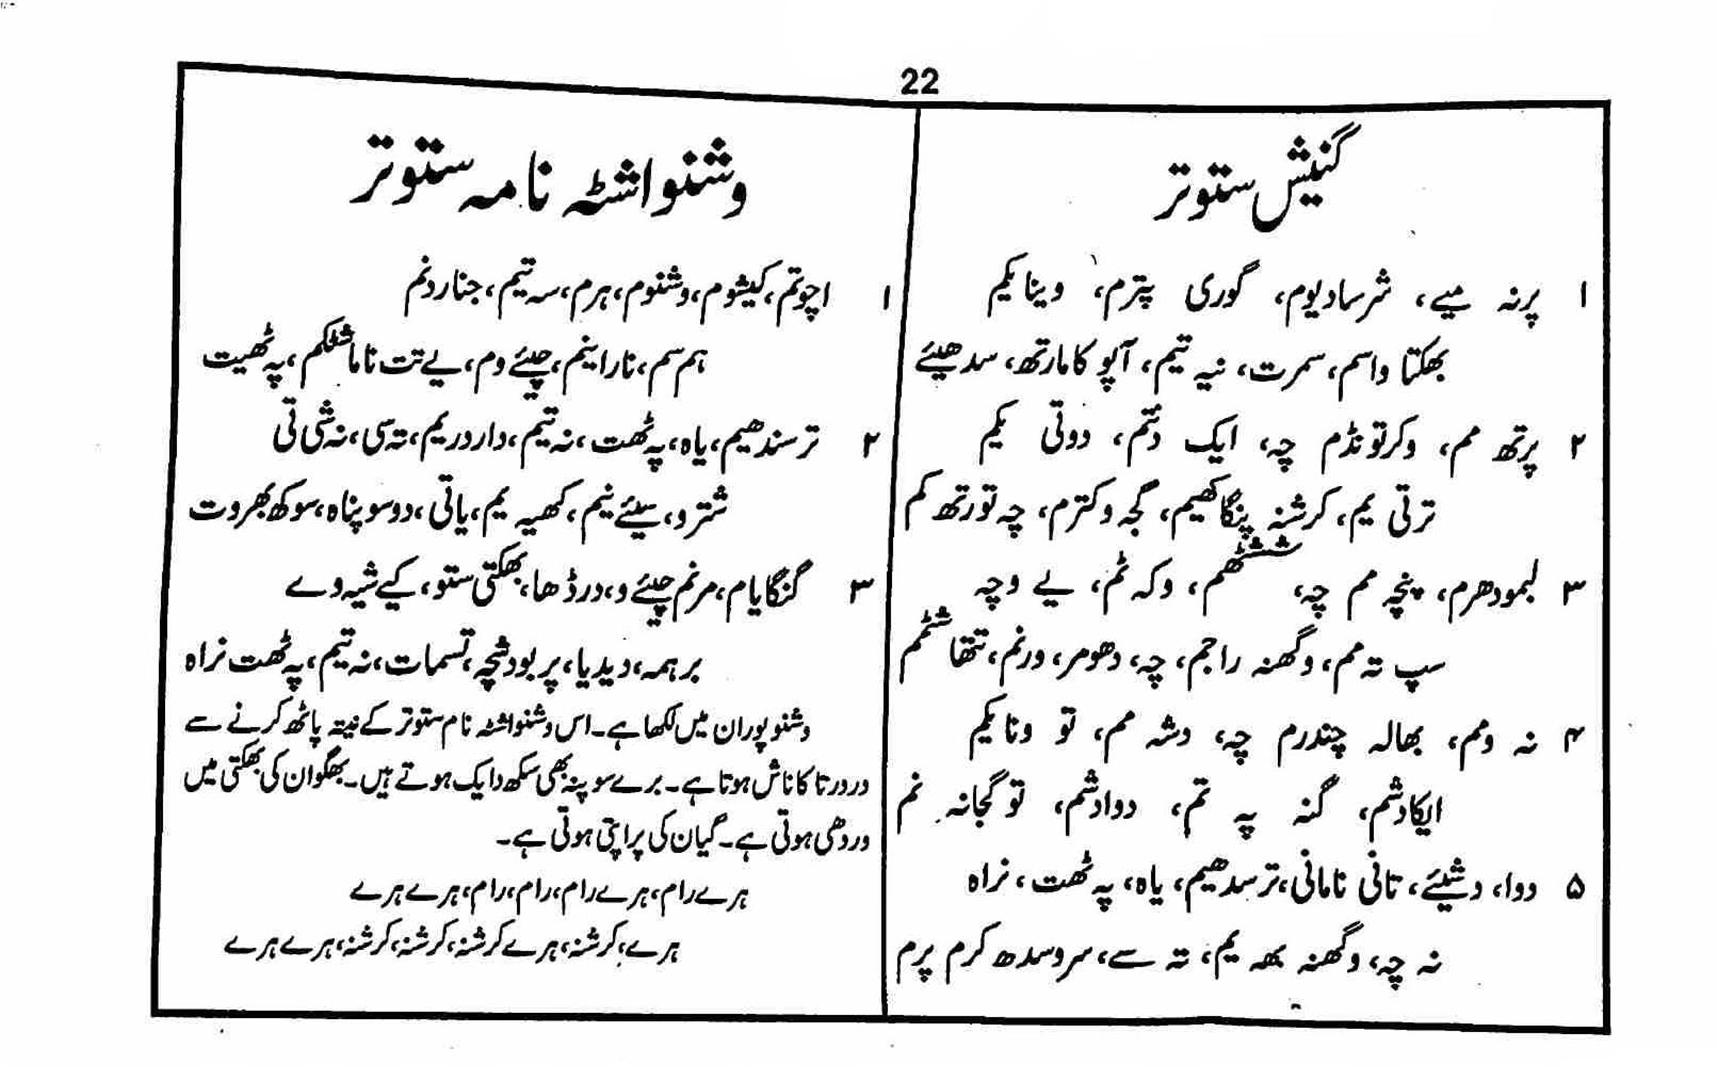 22
گنیش ستوتر
۱ پرنہ میے، شرسادیوم، گوری پترم، وینایکم
بھکتا واسم، سمرت، نیہ تیم، آیو کامارتھ، سدھیئے
۲ پرتھ مم، وکرتونڈم چہ، ایک دنتم، دوتی یکم
ترتی یم، کرشنہ پنگاکھیم، گجہ وکترم، چہ تورتھ کم
۳ لمبودھرم، پنچہ مم چہ، ششٹھم، وکہ ٹم، یے وچہ
سپ تہ مم، وگھنہ راجم، چہ، دھومر، ورنم، تتھاشٹمم
۴ نہ ومم، بھالہ چندرم چہ، دشہ مم، تو ونایکم
ایکادشم، گنہ پہ تم، دوادشم، تو گجانہ نم
۵ دوا، دشیئے، تانی نامانی، ترسدھیم، یاہ، پہ ٹھت، نراہ
نہ چہ، وگھنہ بھہ یم، تہ سے، سروسدھ کرم پرم
وشنواشٹہ نامہ ستوتر
۱ اچوتم، کیشوم، وشنوم، ہرم، سہ تیم، جناردنم
ہم سم، نارائنم، چیئے وم، یے تت ناماشٹکم، پہ ٹھیت
۲ ترسندھیم، یاہ، پہ ٹھت، نہ تیم، داردریم، تہ سی، نہ شی تی
شترو، سیئے نیم، کھیہ یم، یاتی، دوسوپناہ، سوکھ بھروت
۳ گنگایام، مرنم چیئے و، درڈھا، بھکتی ستو، کیے شیہ وے
برہمہ، دیدیا، پربودشچہ، تسمات، نہ تیم، پہ ٹھت نراہ
وشنو پوران میں لکھا ہے۔ اس وشنواشٹہ نام ستوتر کے نیتہ پاٹھ کرنے سے
دردرتا کا ناش ہوتا ہے۔ برے سوپنہ بھی سکھ دایک ہوتے ہیں۔ بھگوان کی بھکتی میں
وردھی ہوتی ہے۔ گیان کی پراپتی ہوتی ہے۔
ہرے رام، ہرے رام، رام، رام، ہرے ہرے
ہرے، کرشنہ، ہرے کرشنہ، کرشنہ، کرشنہ، ہرے ہرے